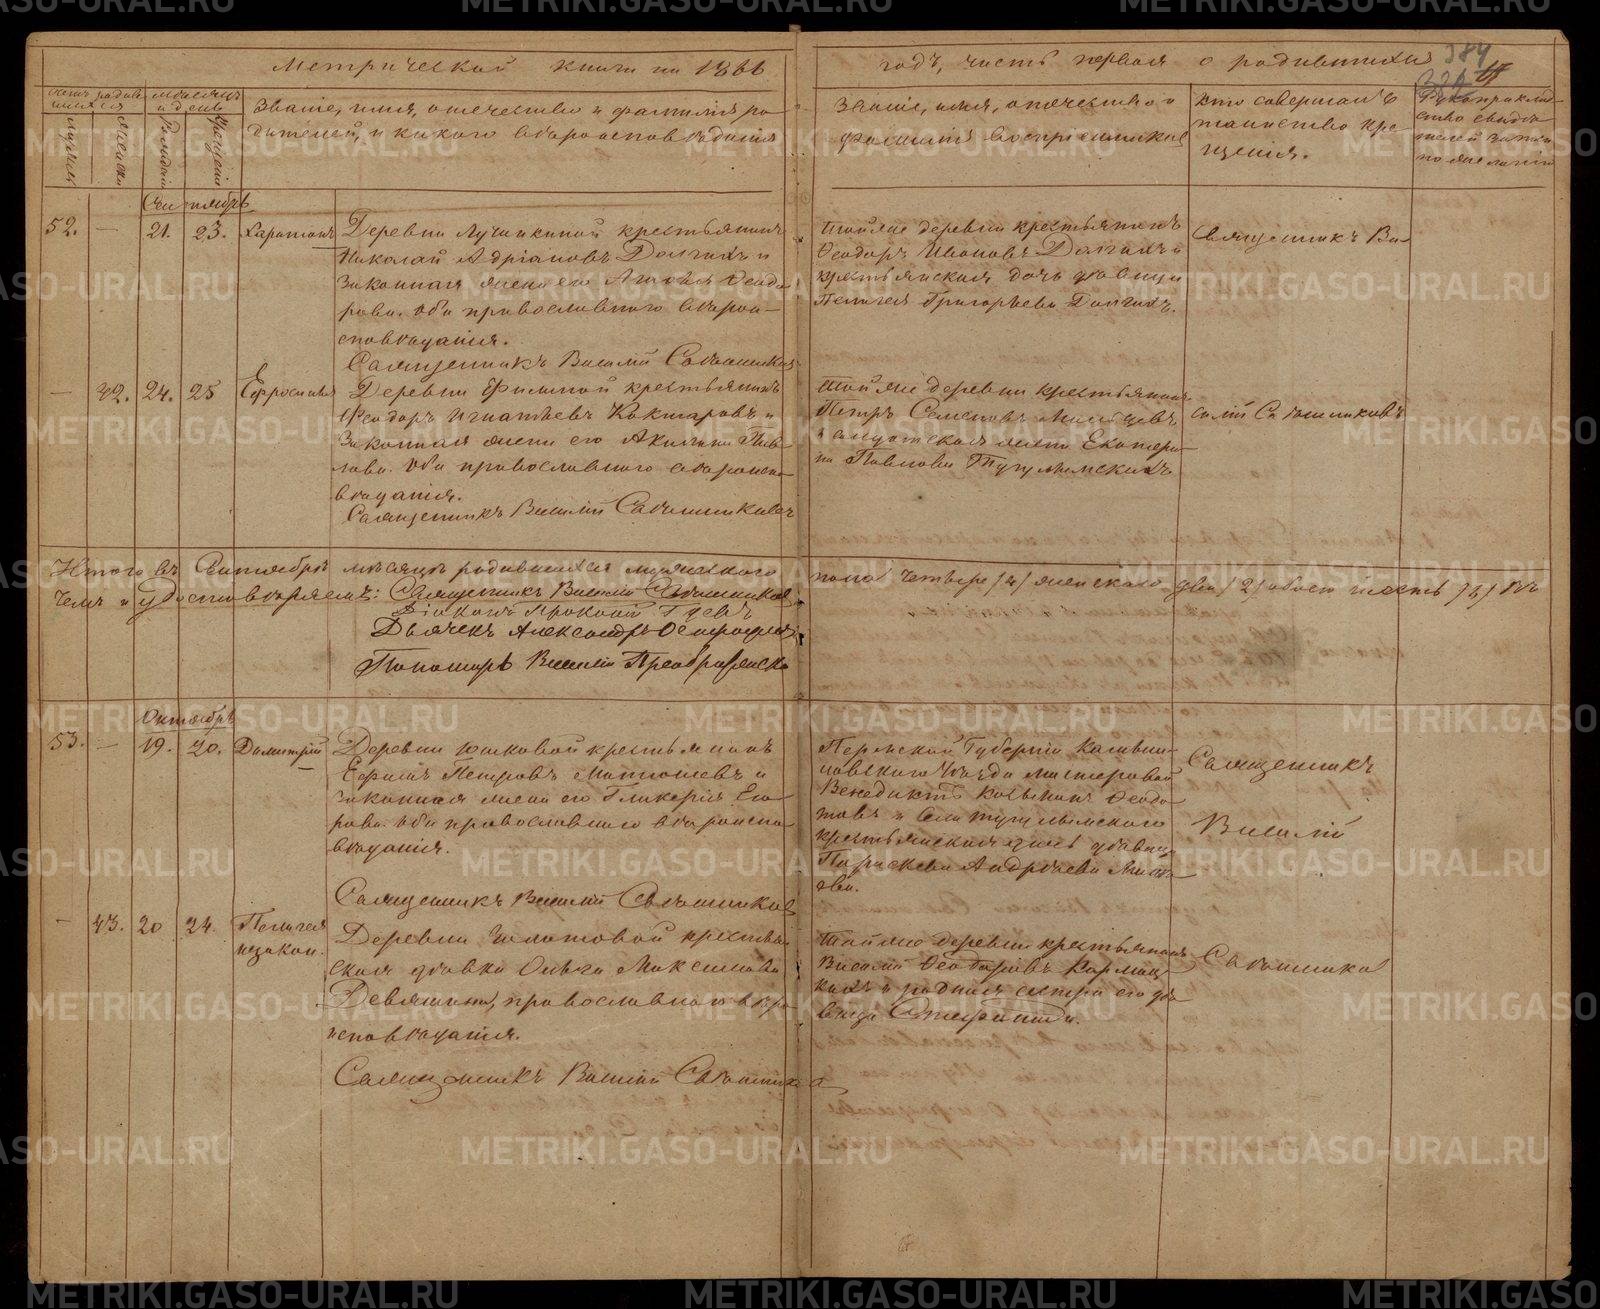 Метрической книги на 1866
годъ, часть первая о родившихся
384
Счетъ родив-
шихся
Мѣсяцъ
и день
Званіе, имя, отечество и фамилія ро-
дителей, и какого вѣроисповѣданія
Званіе, имя, отчество и
фамилія воспріемниковъ
Кто совершалъ
таинство кре-
щенія.
Рукоприклад-
ство свидѣ-
телей записи
по желанію
Мужчинъ
Женскъ
Рожденія
Крещенія
Сентябрь
52. — 21. 23. Харитонъ
Деревни Лучинкиной крестьянинъ
Николай Адріановъ Долгихъ и
Законная жена его Ѳеодо-
рова. Оба православного вѣрои-
сповѣданія.
Священникъ Василій Савашниковъ
Тойже деревни крестьянинъ
Ѳеодоръ Ивановъ Долгихъ и
крестьянская дочь дѣвица
Пелагея Григорьева Долгихъ.
Священникъ Ва-
— 42. 24. 25 Ефросинья
Деревни крестьянинъ
Ѳеодоръ Игнатьевъ Кокшаровъ и
Законная жена его Акилина Пав-
лова. Оба православного вѣроиспо-
вѣданія.
Священникъ Василій Савашниковъ
Той же деревни крестьянинъ
Петръ
и солдатская жена Екатери-
на Павлова Тугулымскихъ
силій Савашниковъ
Итого въ Сентябрѣ мѣсяцѣ родившихся мужескаго
пола четверо /4/ женскаго два /2/ обоего шесть /6/ Въ
чемъ и удостовѣряемъ: Священникъ Василій Савашниковъ
Діаконъ Прокопій
Дьячекъ Александръ
Пономарь Василій Преображенскій
Октябрь
53. — 19. 20. Димитрій
Деревни Юшковой крестьянинъ
Ефимъ Петровъ Матюшевъ и
законная жена его Гликерія Его-
рова. Оба православного вѣроиспо-
вѣданія.
Священникъ Василій Савашниковъ
Пермской Губерніи Камыш-
ловскаго Уѣзда мастеровой
Венедиктъ Козьминъ Ѳедо-
товъ и Села Тугулымскаго
крестьянская дочь дѣвица
Параскева Андреева
ева.
Священникъ
Василій
— 43. 20 24. Пелагея
незакон.
Деревни Золотовой крестьян-
ская дѣвка Ольга Максимова
Девяшина, православного вѣро-
исповѣданія.
Священникъ Василій Савашниковъ
Тойже деревни крестьянинъ
Василій Ѳеодоровъ Кармац-
кихъ и родная сестра его дѣ-
вица Стефанида.
Савашниковъ
METRIKI.GASO-URAL.RU